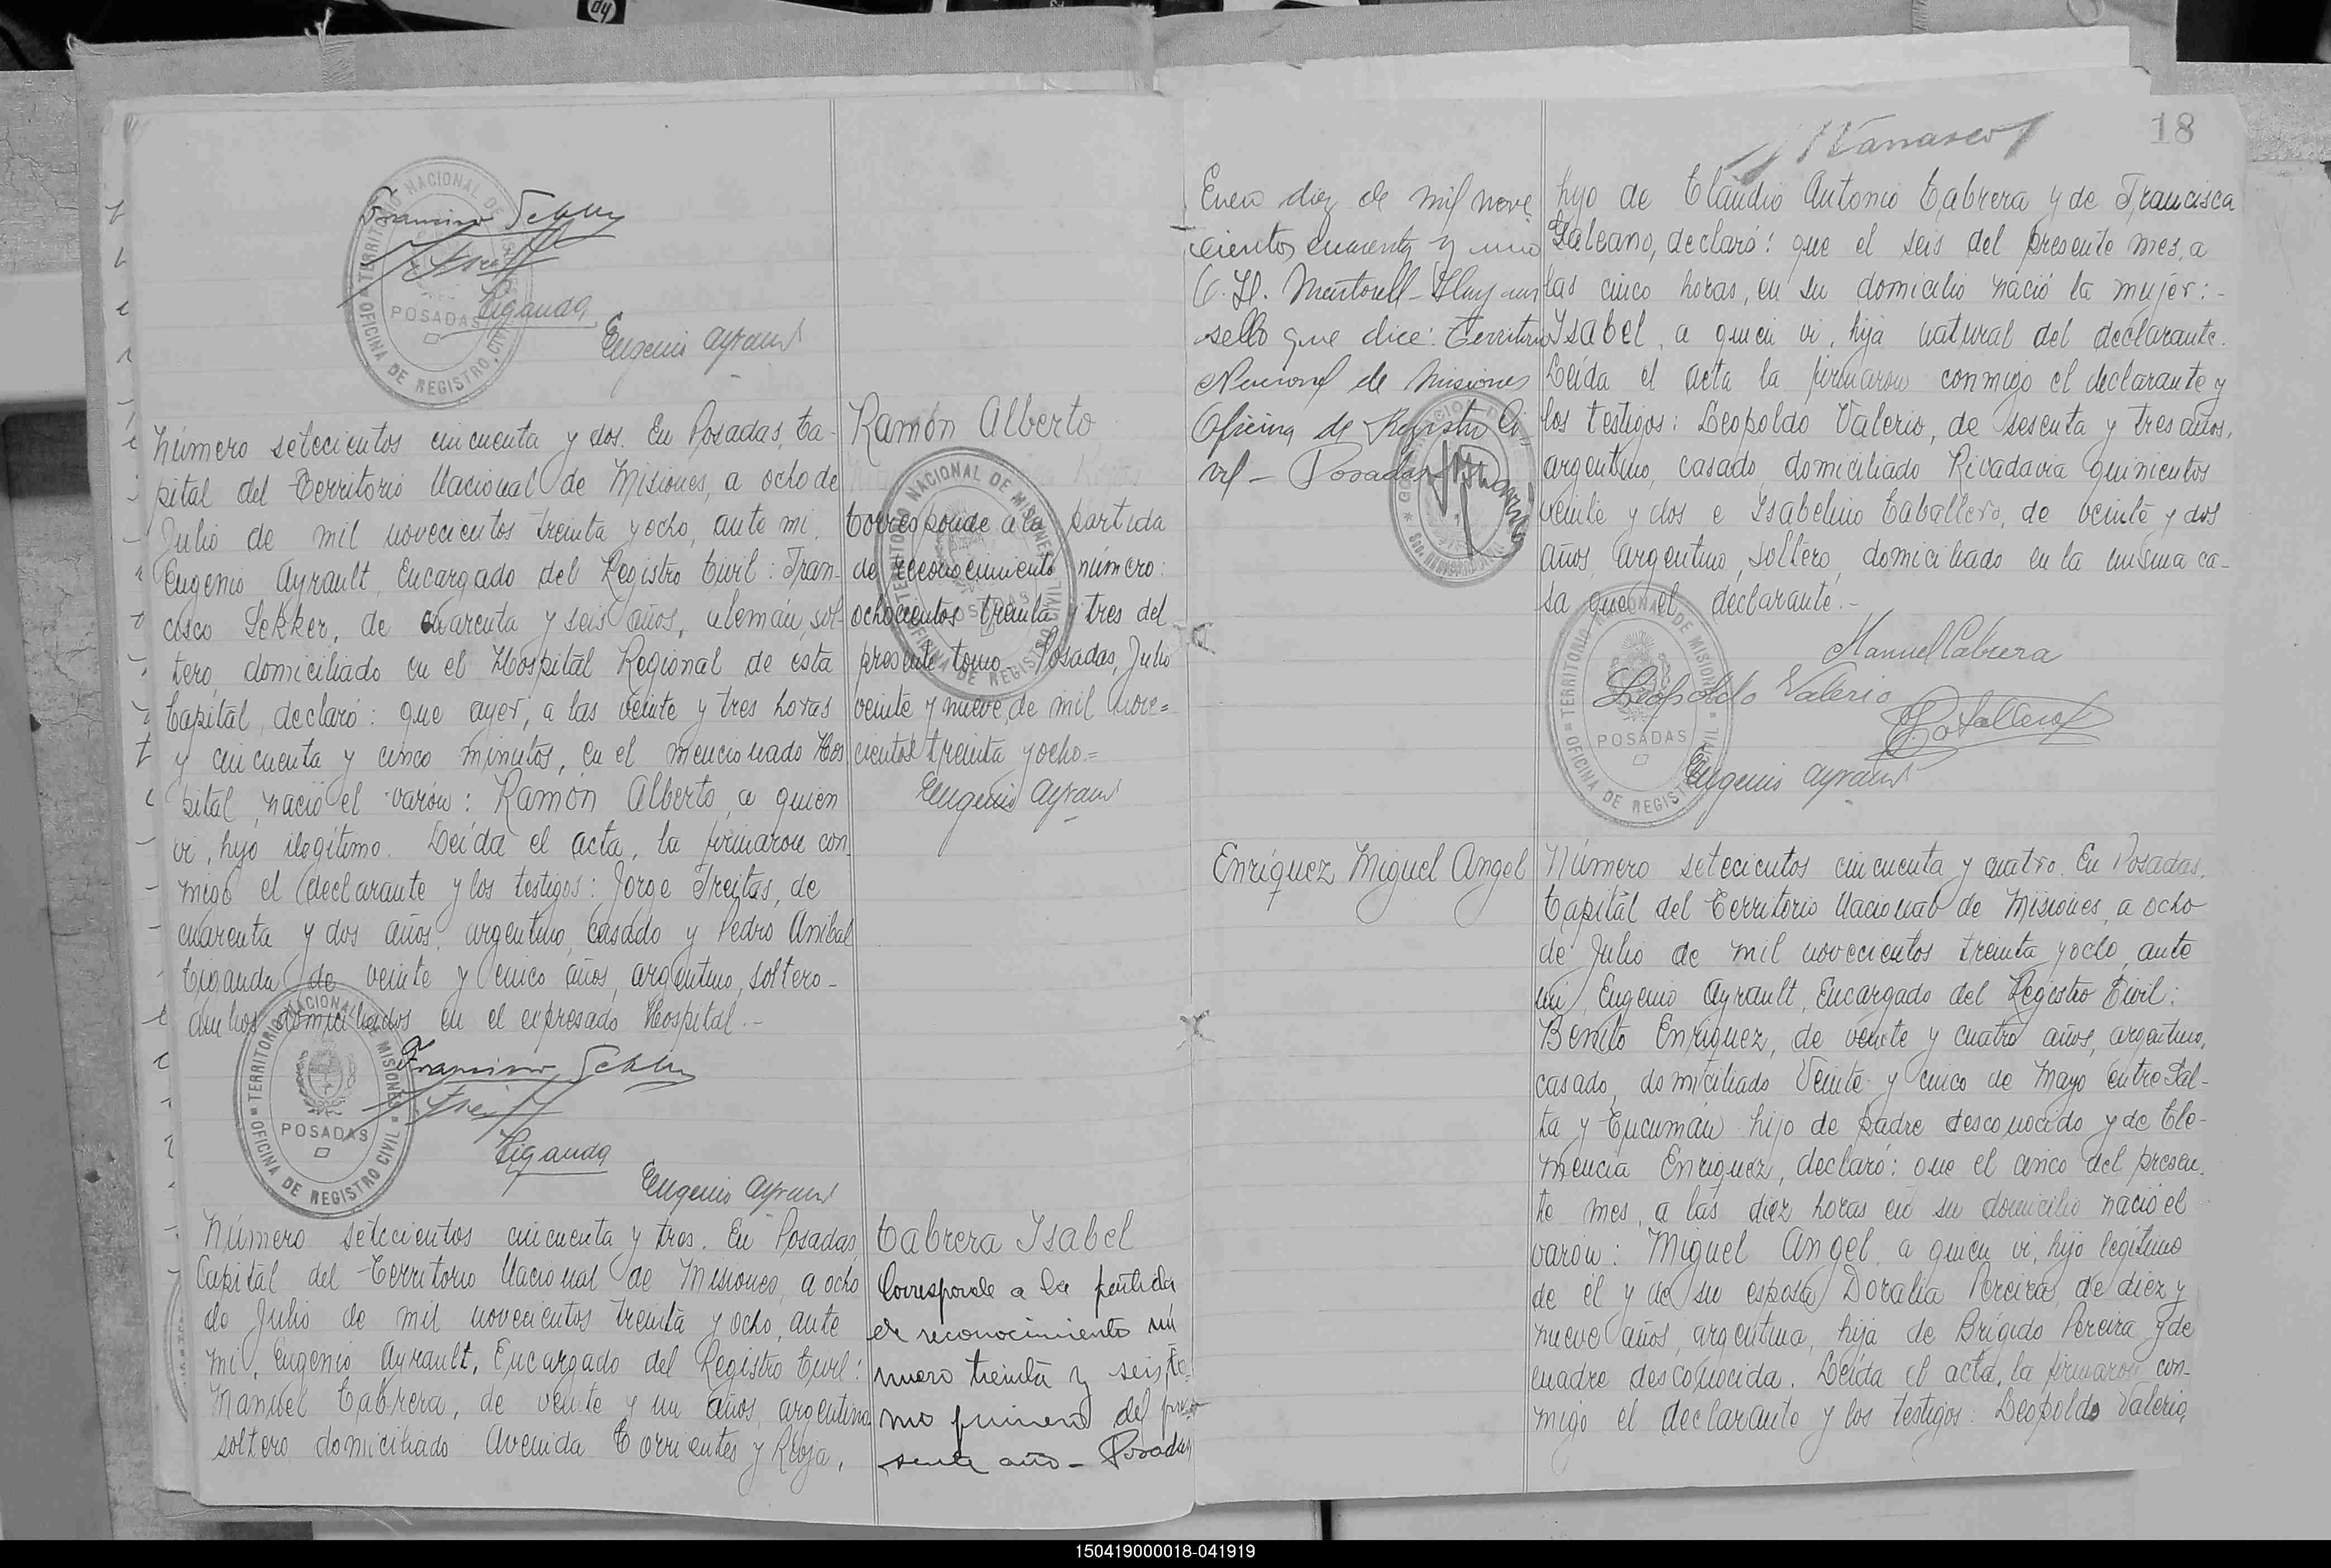 TERRITORIO NACIONAL DE
OFICINA DE REGISTRO CIVIL
POSADAS
Tiganda
Eugenio Ayrault
Número setecientos cincuenta y dos. En Posadas, Ca-
pital del Territorio Nacional de Misiones, a ocho de
Julio de mil novecientos treinta y ocho, ante mi,
Eugenio Ayrault, Encargado del Registro Civil: Fran-
cisco Sekker, de cuarenta y seis años, alemán, sol-
tero, domiciliado en el Hospital Regional de esta
Capital, declaró: que ayer, a las veinte y tres horas
y cincuenta y cinco minutos, en el mencionado Hos
pital, nació el varón: Ramón Alberto, a quien
vi, hijo ilegítimo. Leída el acta, la firmaron con
migo el declarante y los testigos: Jorge Freitas, de
cuarenta y dos años, argentino, casado y Pedro Aníbal
Tiganda, de veinte y cinco años, argentino, soltero-
ambos domiciliados en el expresado Hospital.-
TERRITORIO NACIONAL DE MISIONES
OFICINA DE REGISTRO CIVIL
POSADAS
Tiganda
Eugenio Ayrault
Número setecientos cincuenta y tres. En Posadas,
Capital del Territorio Nacional de Misiones, a ocho
de Julio de mil novecientos treinta y ocho, ante
mi, Eugenio Ayrault, Encargado del Registro Civil:
Manuel Cabrera, de veinte y un años, argentino
soltero, domiciliado Avenida Corrientes y Rioja,
Ramón Alberto
Corresponde a la partida
de reconocimiento número:
ochocientos treinta y tres del
presente tomo. Posadas, Julio
veinte y nueve de mil nove=
cientos treinta y ocho=
Eugenio Ayrault
TERRITORIO NACIONAL DE MISIONES
OFICINA DE REGISTRO CIVIL
POSADAS
Cabrera Isabel
Corresponde a la partida
de reconocimiento nú
mero treinta y seis, to
mo primero del pre
sente año - Posadas
Enero diez de mil nove
cientos cuarenta y uno
C. H. Martorell - Hay un
sello que dice: Territorio
Nacional de Misiones
Oficina de Registro Ci
vil - Posadas
Enríquez Miguel Angel
18
hijo de Claudio Antonio Cabrera y de Francisca
Galeano, declaró: que el seis del presente mes, a
las cinco horas, en su domicilio nació la mujer:-
Isabel, a quien vi, hija natural del declarante.
Leída el acta la firmaron conmigo el declarante y
los testigos: Leopoldo Valerio, de sesenta y tres años,
argentino, casado, domiciliado Rivadavia quinientos
veinte y dos e Isabelino Caballero, de veinte y dos
años, argentino, soltero, domiciliado en la misma ca-
sa que el declarante.-
Manuel Cabrera
Leopoldo Valerio
Caballero
Eugenio Ayrault
TERRITORIO NACIONAL DE MISIONES
OFICINA DE REGISTRO CIVIL
POSADAS
Número setecientos cincuenta y cuatro. En Posadas,
Capital del Territorio Nacional de Misiones, a ocho
de Julio de mil novecientos treinta y ocho, ante
mi, Eugenio Ayrault, Encargado del Registro Civil:
Benito Enríquez, de veinte y cuatro años, argentino,
casado, domiciliado Veinte y cinco de Mayo entre Sal-
ta y Tucumán hijo de padre desconocido y de Cle-
mencia Enríquez, declaró: que el cinco del presen-
te mes, a las diez horas en su domicilio nació el
varón: Miguel Angel, a quien vi, hijo legítimo
de él y de su esposa Doralia Pereira, de diez y
nueve años, argentina, hija de Brígido Pereira y de
madre desconocida. Leída el acta, la firmaron con-
migo el declarante y los testigos: Leopoldo Valerio,
150419000018-041919